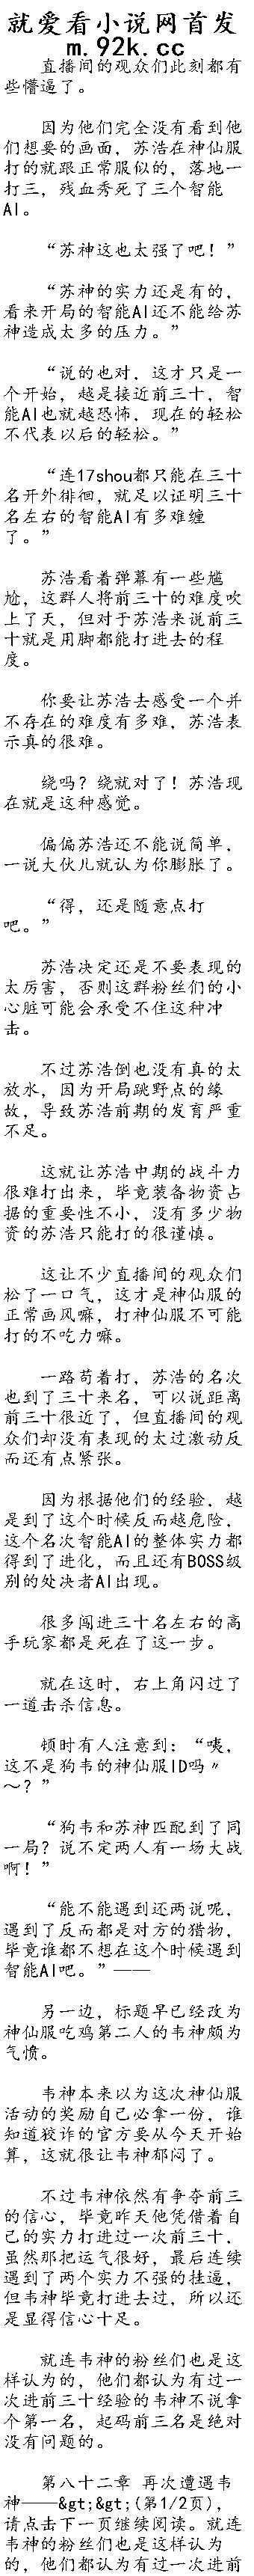 就爱看小说网首发
m.92k.cc
直播间的观众们此刻都有
些懵逼了。
因为他们完全没有看到他
们想要的画面，苏浩在神仙服
打的就跟正常服似的，落地一
打三，残血秀死了三个智能
AI。
“苏神这也太强了吧！”
“苏神的实力还是有的，
看来开局的智能AI还不能给苏
神造成太多的压力。”
“说的也对，这才只是一
个开始，越是接近前三十，智
能AI也就越恐怖，现在的轻松
不代表以后的轻松。”
“连17shou都只能在三十
名开外徘徊，就足以证明三十
名左右的智能AI有多难缠
了。”
苏浩看着弹幕有一些尴
尬，这群人将前三十的难度吹
上了天，但对于苏浩来说前三
十就是用脚都能打进去的程
度。
你要让苏浩去感受一个并
不存在的难度有多难，苏浩表
示真的很难。
绕吗？绕就对了！苏浩现
在就是这种感觉。
偏偏苏浩还不能说简单，
一说大伙儿就认为你膨胀了。
“得，还是随意点打
吧。”
苏浩决定还是不要表现的
太厉害，否则这群粉丝们的小
心脏可能会承受不住这种冲
击。
不过苏浩倒也没有真的太
放水，因为开局跳野点的缘
故，导致苏浩前期的发育严重
不足。
这就让苏浩中期的战斗力
很难打出来，毕竟装备物资占
据的重要性不小，没有多少物
资的苏浩只能打的很谨慎。
这让不少直播间的观众们
松了一口气，这才是神仙服的
正常画风嘛，打神仙服不可能
打的不吃力嘛。
一路苟着打，苏浩的名次
也到了三十来名，可以说距离
前三十很近了，但直播间的观
众们却没有表现的太过激动反
而还有点紧张。
因为根据他们的经验，越
是到了这个时候反而越危险，
这个名次智能AI的整体实力都
得到了进化，而且还有BOSS级
别的处决者AI出现。
很多闯进三十名左右的高
手玩家都是死在了这一步。
就在这时，右上角闪过了
一道击杀信息。
顿时有人注意到：“咦，
这不是狗韦的神仙服ID吗〃
～？”
“狗韦和苏神匹配到了同
一局？说不定两人有一场大战
啊！”
“能不能遇到还两说呢，
遇到了反而都是对方的猎物，
毕竟谁都不想在这个时候遇到
智能AI吧。”——
另一边，标题早已经改为
神仙服吃鸡第二人的韦神颇为
气愤。
韦神本来以为这次神仙服
活动的奖励自己必拿一份，谁
知道狡诈的官方要从今天开始
算，这就很让韦神郁闷了。
不过韦神依然有争夺前三
的信心，毕竟昨天他凭借着自
己的实力打进过一次前三十，
虽然那把运气很好，最后连续
遇到了两个实力不强的挂逼，
但韦神毕竟打进去过，所以还
是显得信心十足。
就连韦神的粉丝们也是这
样认为的，他们都认为有过一
次进前三十经验的韦神不说拿
个第一名，起码前三名是绝对
没有问题的。
第八十二章 再次遭遇韦
神——&gt;&gt;(第1/2页)，
请点击下一页继续阅读。就连
韦神的粉丝们也是这样认为
的，他们都认为有过一次进前